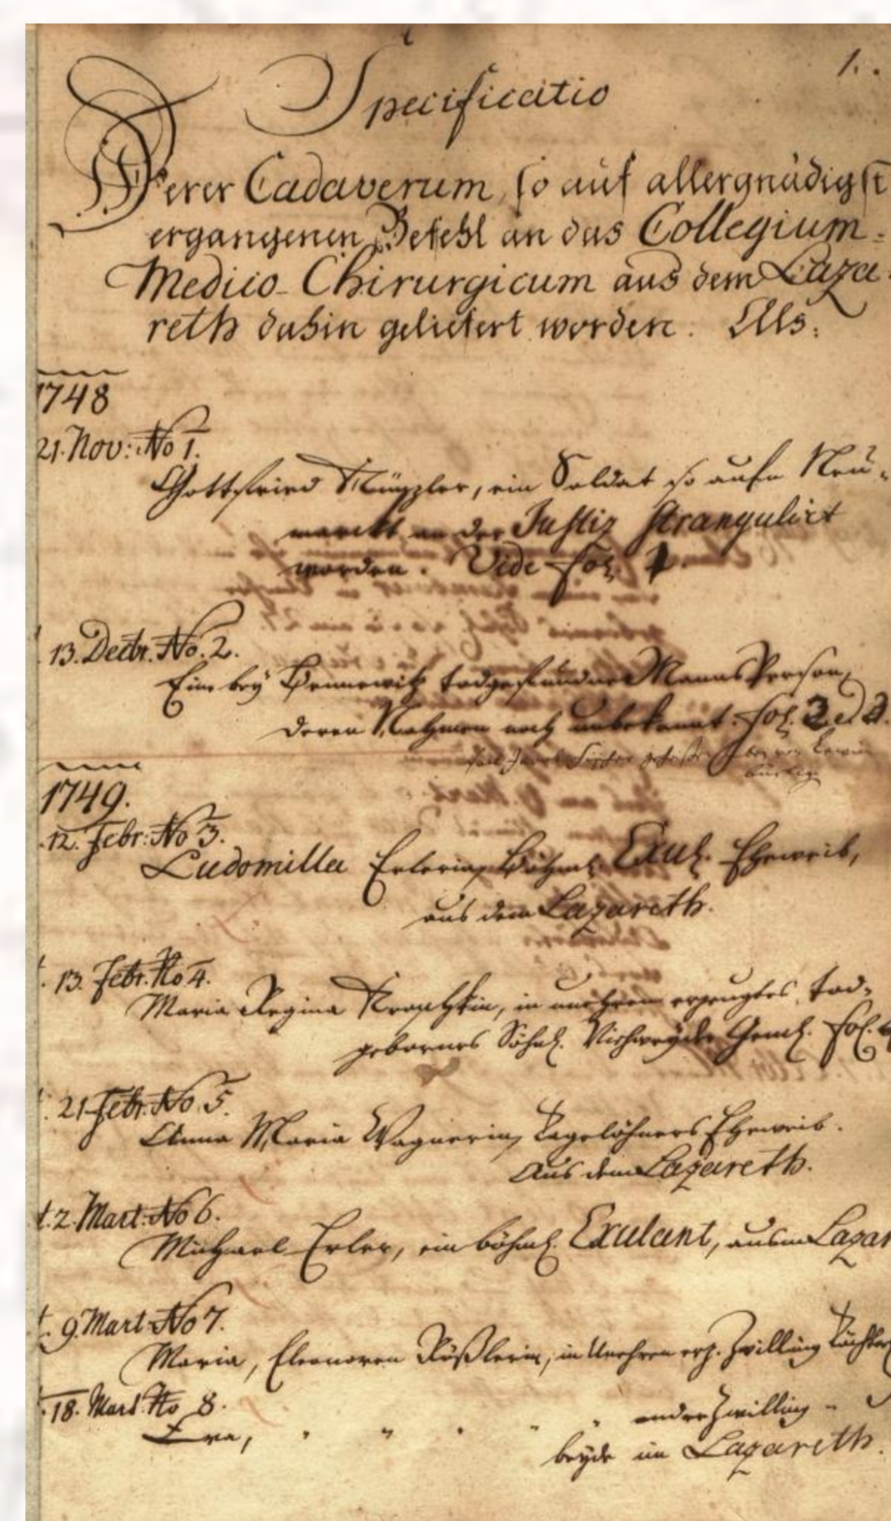 1.
Specificatio
Derer Cadaverum, so auf allergnädigst
ergangenen Befehl an das Collegium
Medico-Chirurgicum aus dem Laza-
reth dahin geliefert worden. Als:
1748
21. Nov: No 1.
Gottfried, ein Soldat so aufn Neu-
marckt an der Justiz strangulirt
worden. Vide fol. 1.
13. Decbr. No. 2.
Eine bey todgefundene Manns Person,
deren Nahmen noch unbekannt. fol. 2
1749.
12. Febr: No 3.
Ludomilla Erlerin, Böhm. Exul. Eheweib,
aus dem Lazareth.
13. Febr. No 4.
Maria Regina, in unehren erzeugtes tod-
gebornes Söhnl. fol.
21. Febr. No 5.
Anna Maria Wagnerin, Tagelöhners Eheweib.
Aus dem Lazareth.
t. 2. Mart. No 6.
Michael Erler, ein böhm. Exulant, ausm Lazar
t. 9. Mart. No 7.
Maria, Eleonoren Rüßlerin, in Unehren erz. Zwilling Töchter
18. Mart. No 8.
Eva, " " " " ander Zwilling "
beyde im Lazareth.